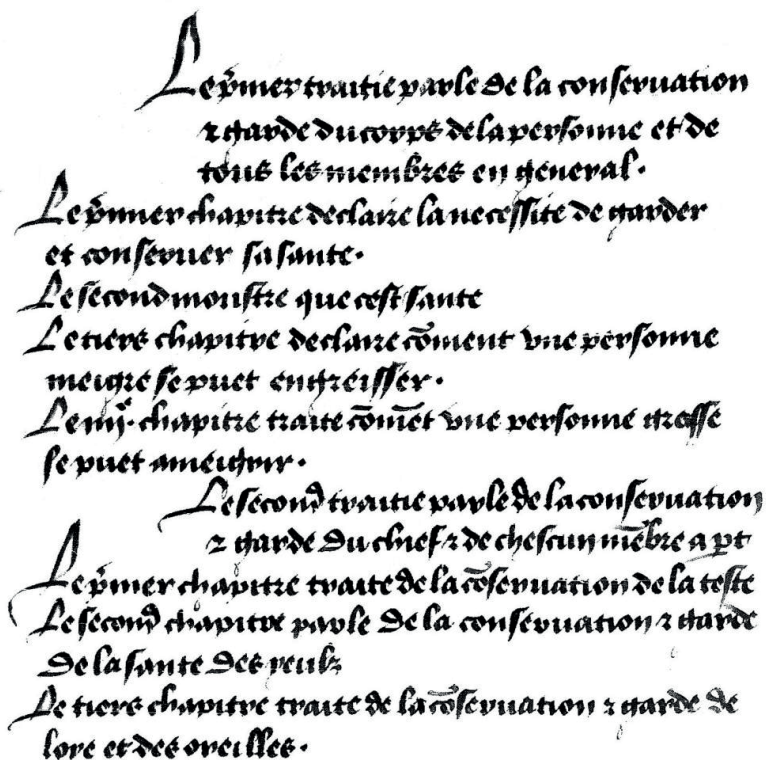 Le p̄mier traitie parle de la conseruation
⁊ garde du corps de la personne et de
tous les membres en general.
Le p̄mier chapitre declaire la necessite de garder
et conseruer sa sante.
Le second monstre que cest sante
Le tiers chapitre declaire cōment vne personne
meigre se puet engreisser.
Le iiijᵉ. chapitre traite cōmēt vne personne grasse
se puet ameigrir.
Le second traitie parle de la conseruation
⁊ garde du chief ⁊ de chescun mēbre a p̱t
Le p̄mier chapitre traite de la cōseruation de la teste
Le second chapitre parle de la conseruation ⁊ garde
de la sante des yeulz
Le tiers chapitre traite de la cōseruation ⁊ garde de
loye et des oreilles.